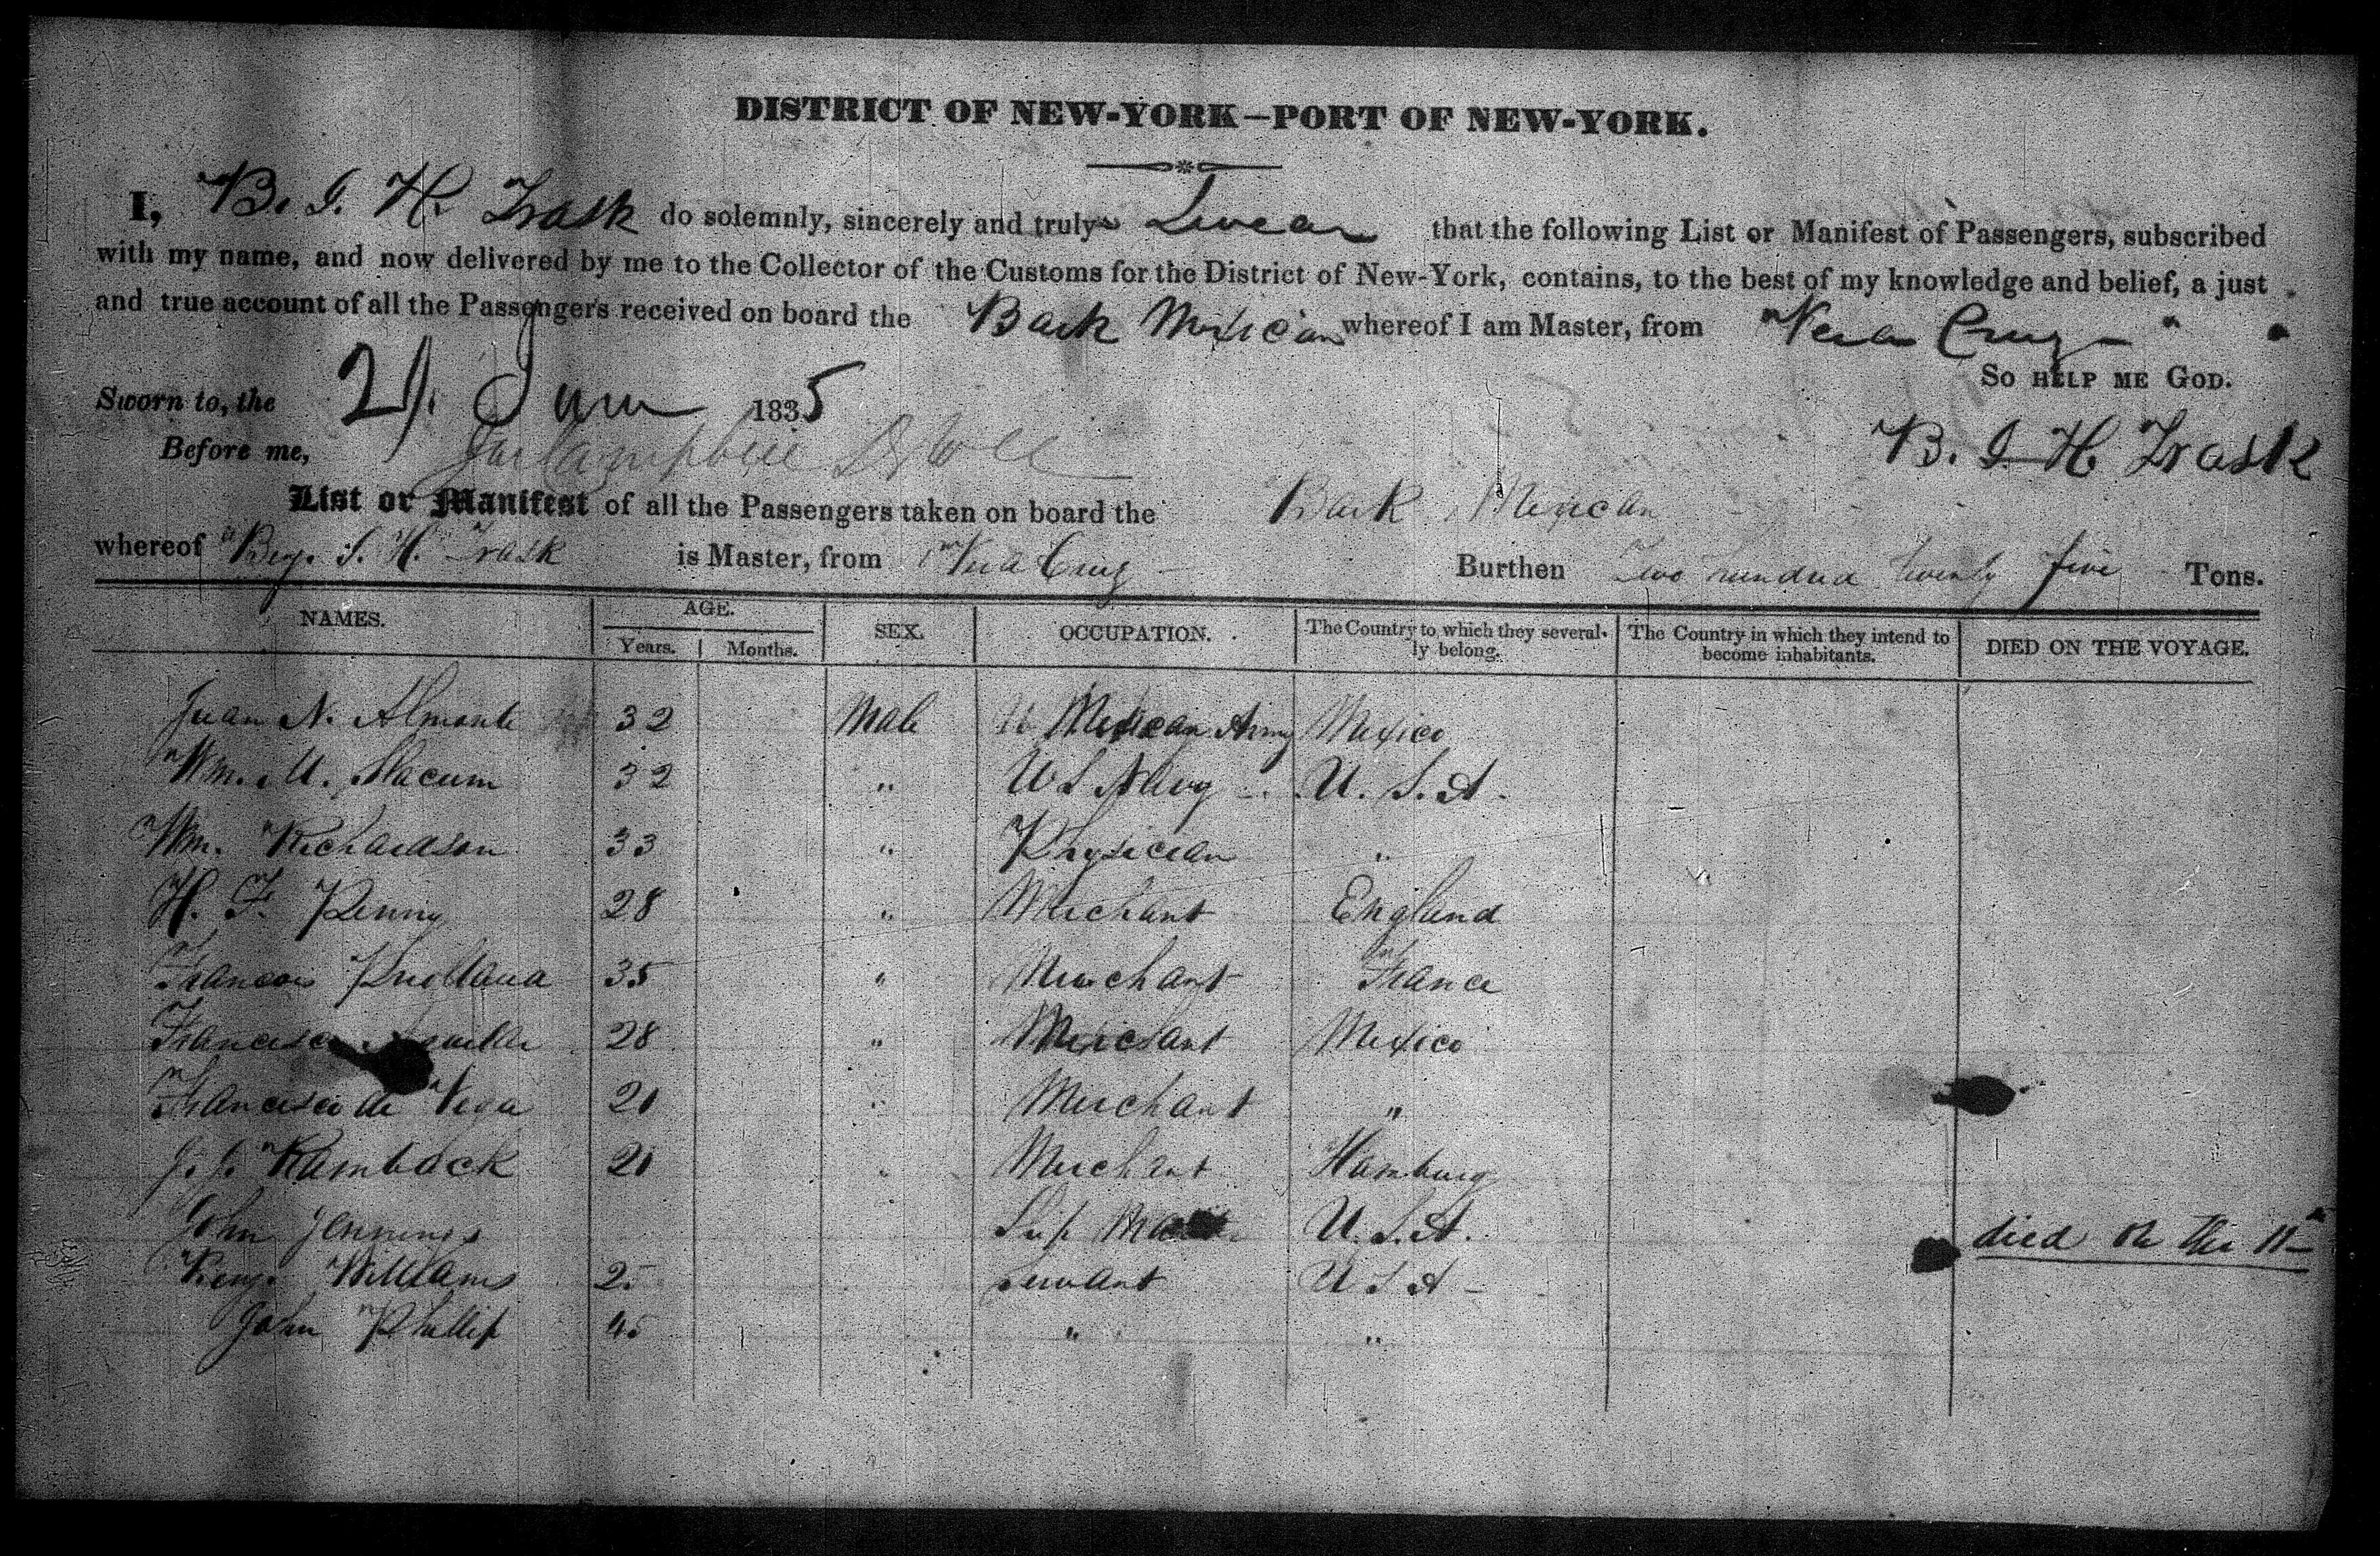 DISTRICT OF NEW-YORK—PORT OF NEW-YORK.
I, B. I. H. Trask do solemnly, sincerely and truly Swear that the following List or Manifest of Passengers, subscribed
with my name, and now delivered by me to the Collector of the Customs for the District of New-York, contains, to the best of my knowledge and belief, a just
and true account of all the Passengers received on board the Bark Mexican whereof I am Master, from Vera Cruz
So help me God.
Sworn to, the 21 1835
B. I. H. Trask
Before me,
List or Manifest of all the Passengers taken on board the Bark Mexican
whereof Benj. I. H. Trask is Master, from Vera Cruz Burthen Two hundred twenty five Tons.
NAMES. AGE. SEX. OCCUPATION. The Country to which they several- The Country in which they intend to DIED ON THE VOYAGE.
Years. Months. ly belong. become inhabitants.
Juan N. Almonte 32 Male Mexican Army Mexico
Wm. A. Slacum 32 " U S Navy U. S. A.
Wm. Richardson 33 " Physician "
H. F. Penny 28 " Merchant England
Francois 35 " Merchant France
Francisco 28 " Merchant Mexico
Francisco de Vega 21 " Merchant "
J. J. Rambock 21 " Merchant Hamburg
John Jennings U. S. A. died on the 11th
Benj. Williams 25 Servant U S A
John Phillip 45 " "